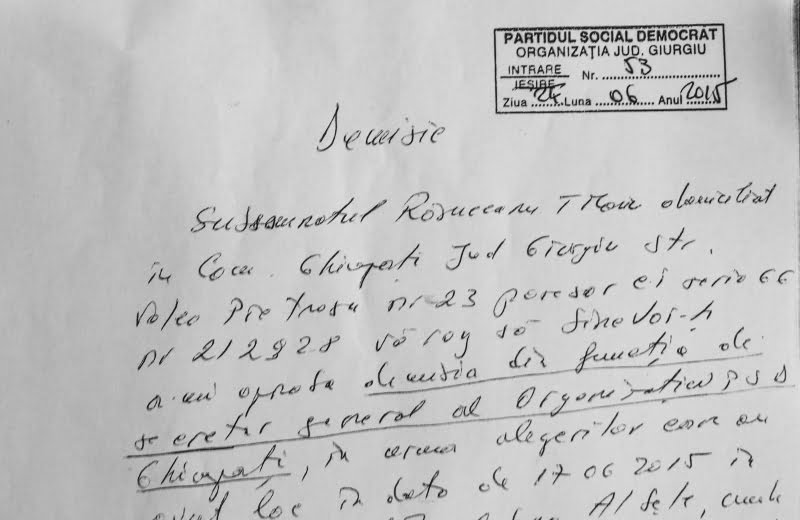 PARTIDUL SOCIAL DEMOCRAT
ORGANIZAȚIA JUD. GIURGIU
INTRARE
IEȘIRE
Nr. 53
Ziua 24 Luna 06 Anul 2015
Demisie
Subsemnatul domiciliat
în Com. Ghimpați Jud Giurgiu str.
Valea Pietroasa nr 23 posesor ci seria GG
nr 212928 vă rog să
a-mi aproba demisia din funcția de
secretar general al Organizației PSD
Ghimpați, în urma alegerilor care au
avut loc în data de 17 06 2015 în